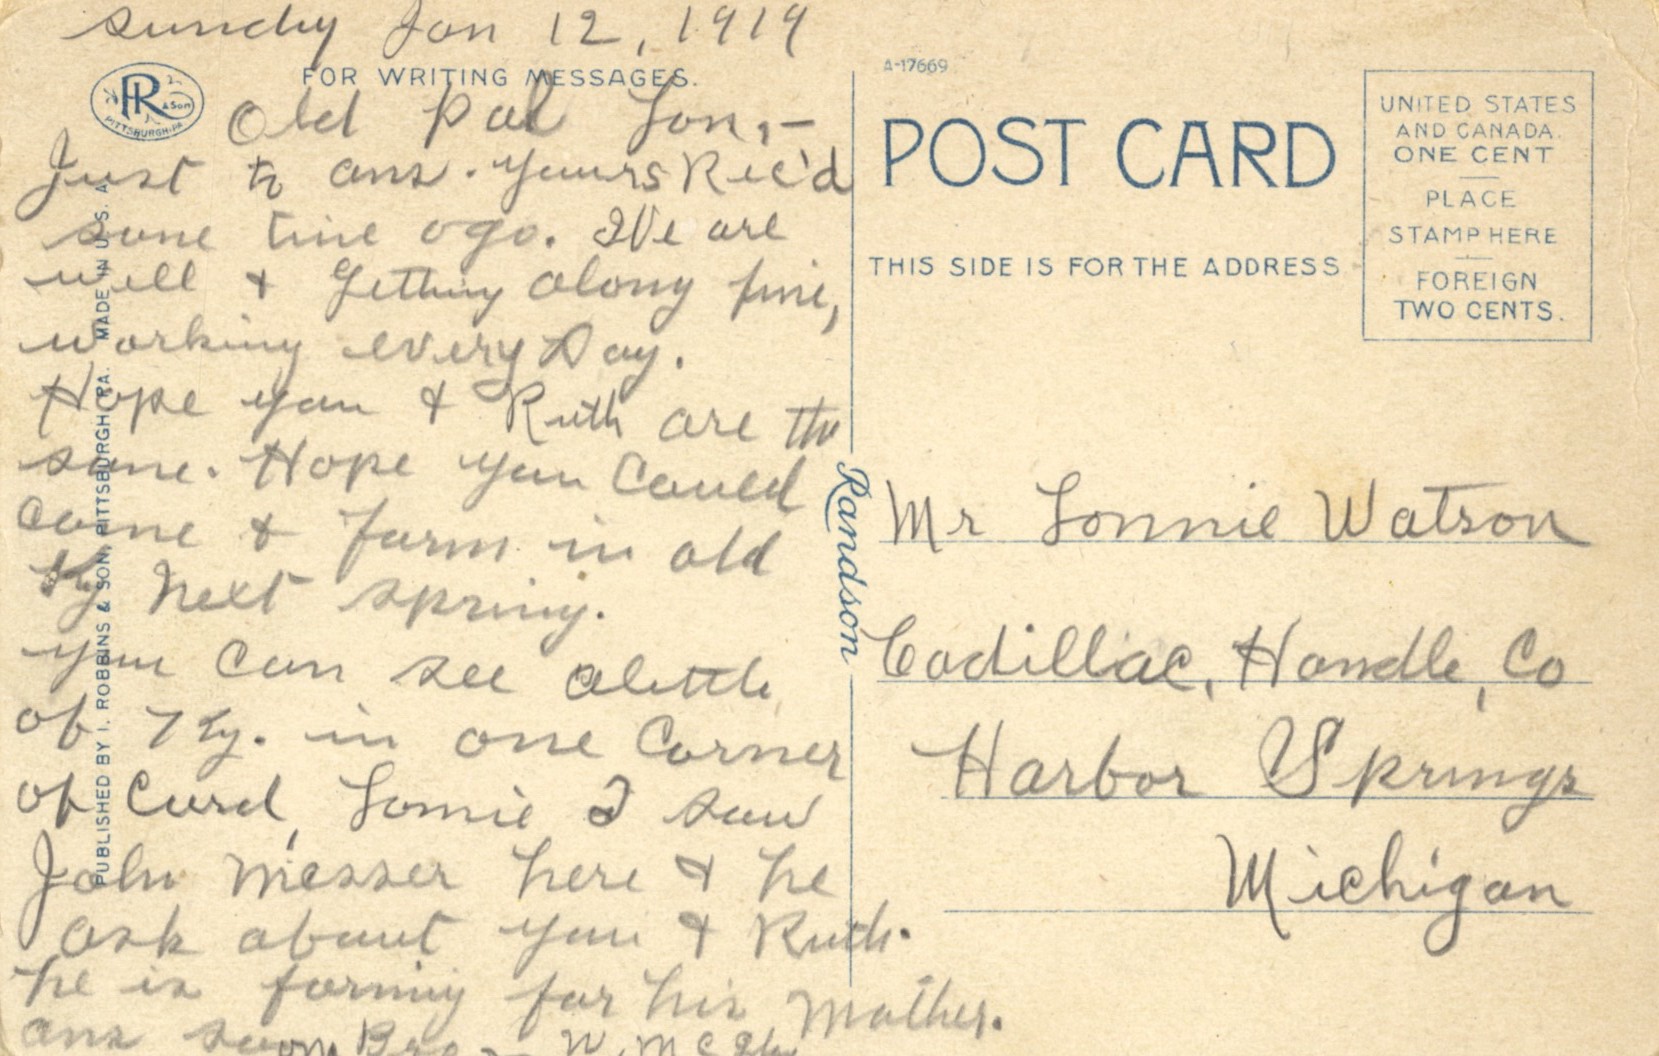 Sunday Jan 12, 1919
FOR WRITING MESSAGES.
PR & Son
PITTSBURGH, PA.
Old Pal Lon,-
Just to ans. yours Rec'd
some time ago. We are
well & getting along fine,
working every Day.
Hope you & Ruth are the
same. Hope you could
come & farm in old
Ky next spring.
you can see alittle
of Ky. in one Corner
of Card, Lonnie I saw
John Messer here & he
ask about you & Ruth.
he is farming for his Mother.
ans soon Bro - W.
PUBLISHED BY I. ROBBINS & SON, PITTSBURGH, PA. MADE IN U.S.A.
Randson
A-17669
POST CARD
THIS SIDE IS FOR THE ADDRESS
UNITED STATES
AND CANADA.
ONE CENT
PLACE
STAMP HERE
FOREIGN
TWO CENTS.
Mr Lonnie Watson
Cadillac, Handle, Co
Harbor Springs
Michigan